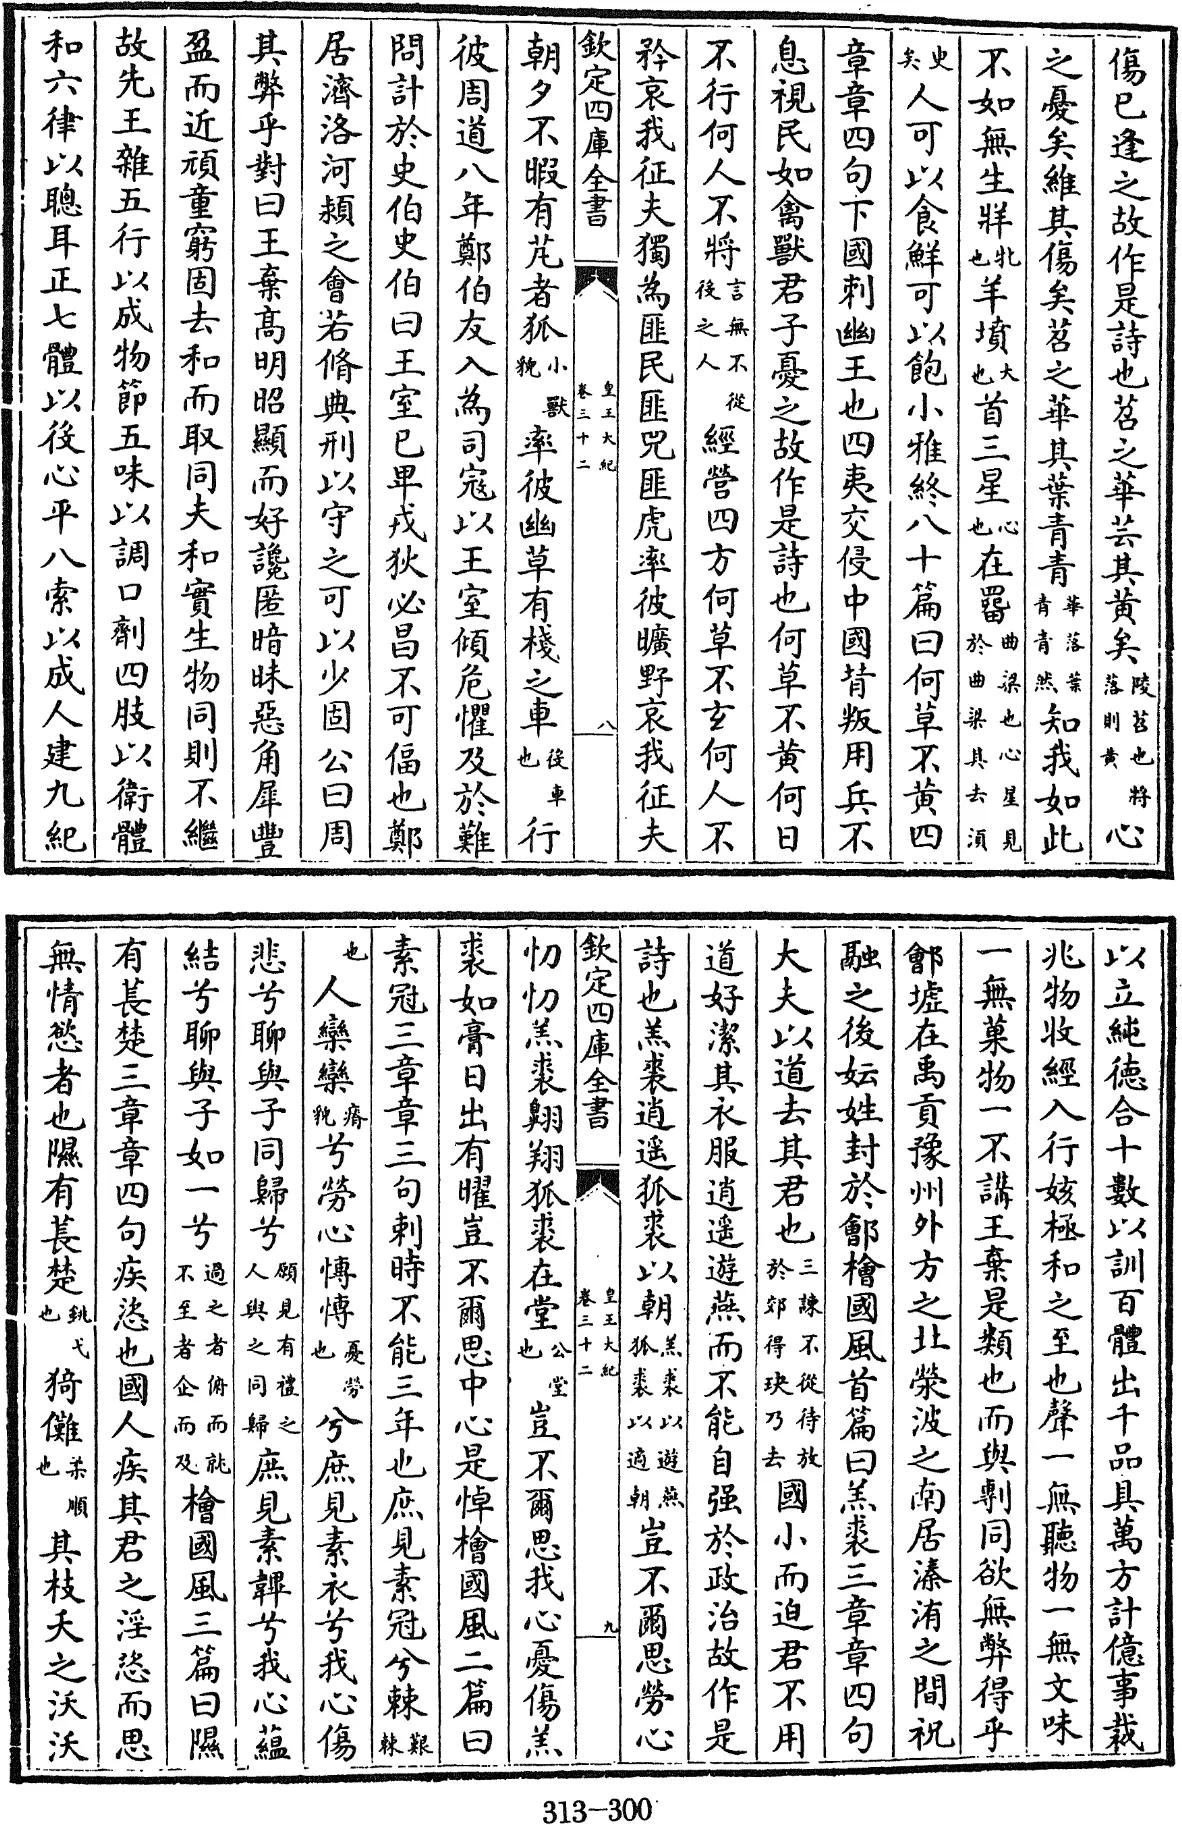 傷已逢之故作是詩也苕之華芸其黃矣陵苕也將落則黃心
之憂矣維其傷矣苕之華其葉青青華落葉青青然知我如此
不如無生牂牝也羊墳大也首三星心也在罶曲梁也心星見於曲梁其去須
史矣人可以食鮮可以飽小雅終八十篇曰何草不黃四
章章四句下國刺幽王也四夷交侵中國背叛用兵不
息視民如禽獸君子憂之故作是詩也何草不黃何日
不行何人不將言無不從後之人經營四方何草不玄何人不
矜哀我征夫獨為匪民匪兕匪虎率彼曠野哀我征夫
欽定四庫全書 皇王大紀卷三十二 八
朝夕不暇有芃者狐小獸貌率彼幽草有棧之車從車也行
彼周道八年鄭伯友入為司寇以王室傾危懼及於難
問計於史伯史伯曰王室已卑戎狄必昌不可偪也鄭
居濟洛河潁之會若脩典刑以守之可以少固公曰周
其弊乎對曰王棄高明昭顯而好讒匿暗昧惡角犀豐
盈而近頑童窮固去和而取同夫和實生物同則不繼
故先王雜五行以成物節五味以調口劑四肢以衛體
和六律以聰耳正七體以後心平八索以成人建九紀
以立純德合十數以訓百體出千品具萬方計億事裁
兆物收經入行姟極和之至也聲一無聽物一無文味
一無菓物一不講王棄是類也而與剸同欲無弊得乎
鄶墟在禹貢豫州外方之北滎波之南居溱洧之間祝
融之後妘姓封於鄶檜國風首篇曰羔裘三章章四句
大夫以道去其君也三諫不從待放於郊得玦乃去國小而迫君不用
道好潔其衣服逍遥遊燕而不能自强於政治故作是
詩也羔裘逍遥狐裘以朝羔裘以遊燕狐裘以適朝豈不爾思勞心
欽定四庫全書 皇王大紀卷三十二 九
忉忉羔裘翱翔狐裘在堂公堂也豈不爾思我心憂傷羔
裘如膏日出有曜豈不爾思中心是悼檜國風二篇曰
素冠三章章三句刺時不能三年也庶見素冠兮棘艱棘
也人欒欒瘠貌兮勞心慱慱憂勞也兮庶見素衣兮我心傷
悲兮聊與子同歸兮願見有禮之人與之同歸庶見素韠兮我心蘊
結兮聊與子如一兮過之者俯而就不至者企而及檜國風三篇曰隰
有萇楚三章章四句疾恣也國人疾其君之淫恣而思
無情慾者也隰有萇楚銚弋也猗儺柔順也其枝夭之沃沃
313-300